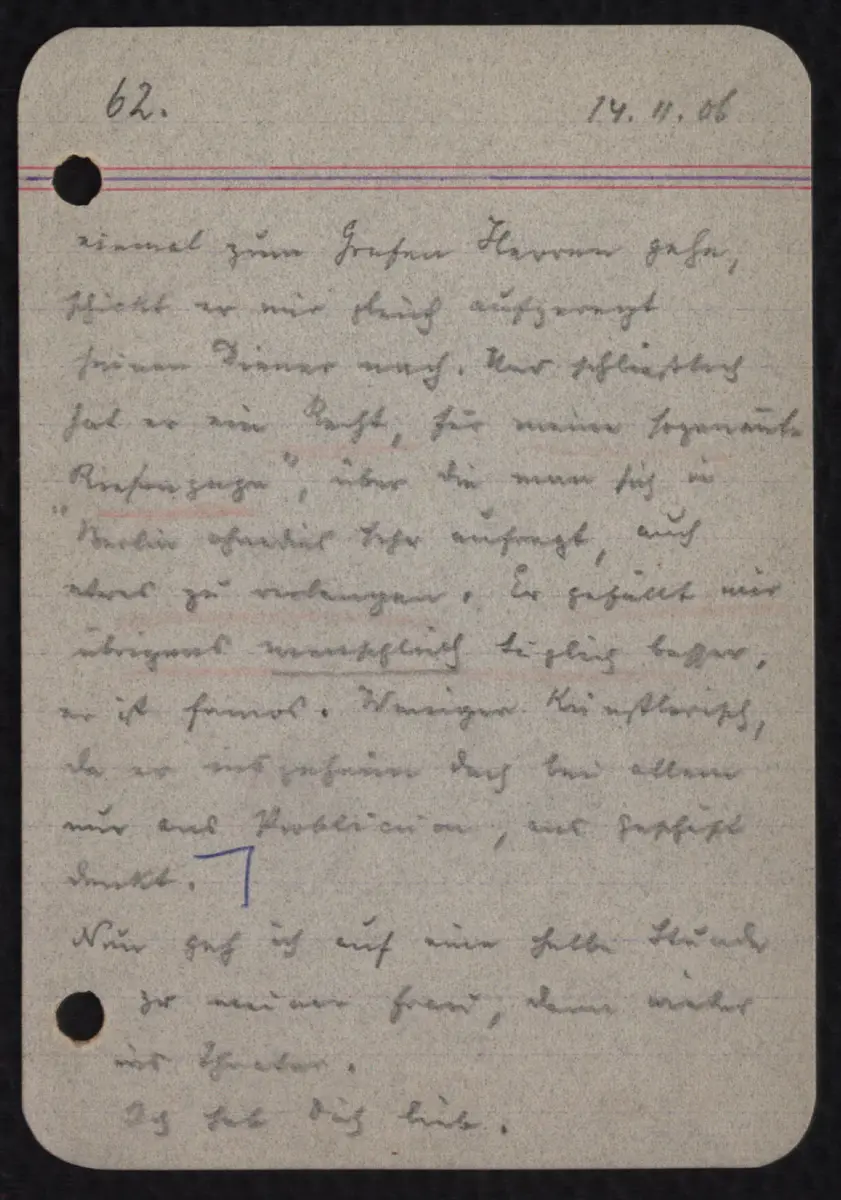 62.
14. 11. 06
einmal zum Grafen Herren gehe,
schickt er mir gleich aufgeregt
seinen Diener nach. Und schließlich
hat er ein Recht, für meine sogenannte
"Riesengage", über die man sich in
Berlin ohnedies sehr aufregt, auch
etwas zu verlangen. Er gefällt mir
übrigens menschlich täglich besser,
er ist famos. Weniger künstlerisch,
da er insgeheim doch bei allem
nur ans Publicum, ans Geschäft
denkt.
Nun geh ich auf eine halbe Stunde
zu meiner Frau, dann wieder
ins Theater.
Ich hab Dich lieb.